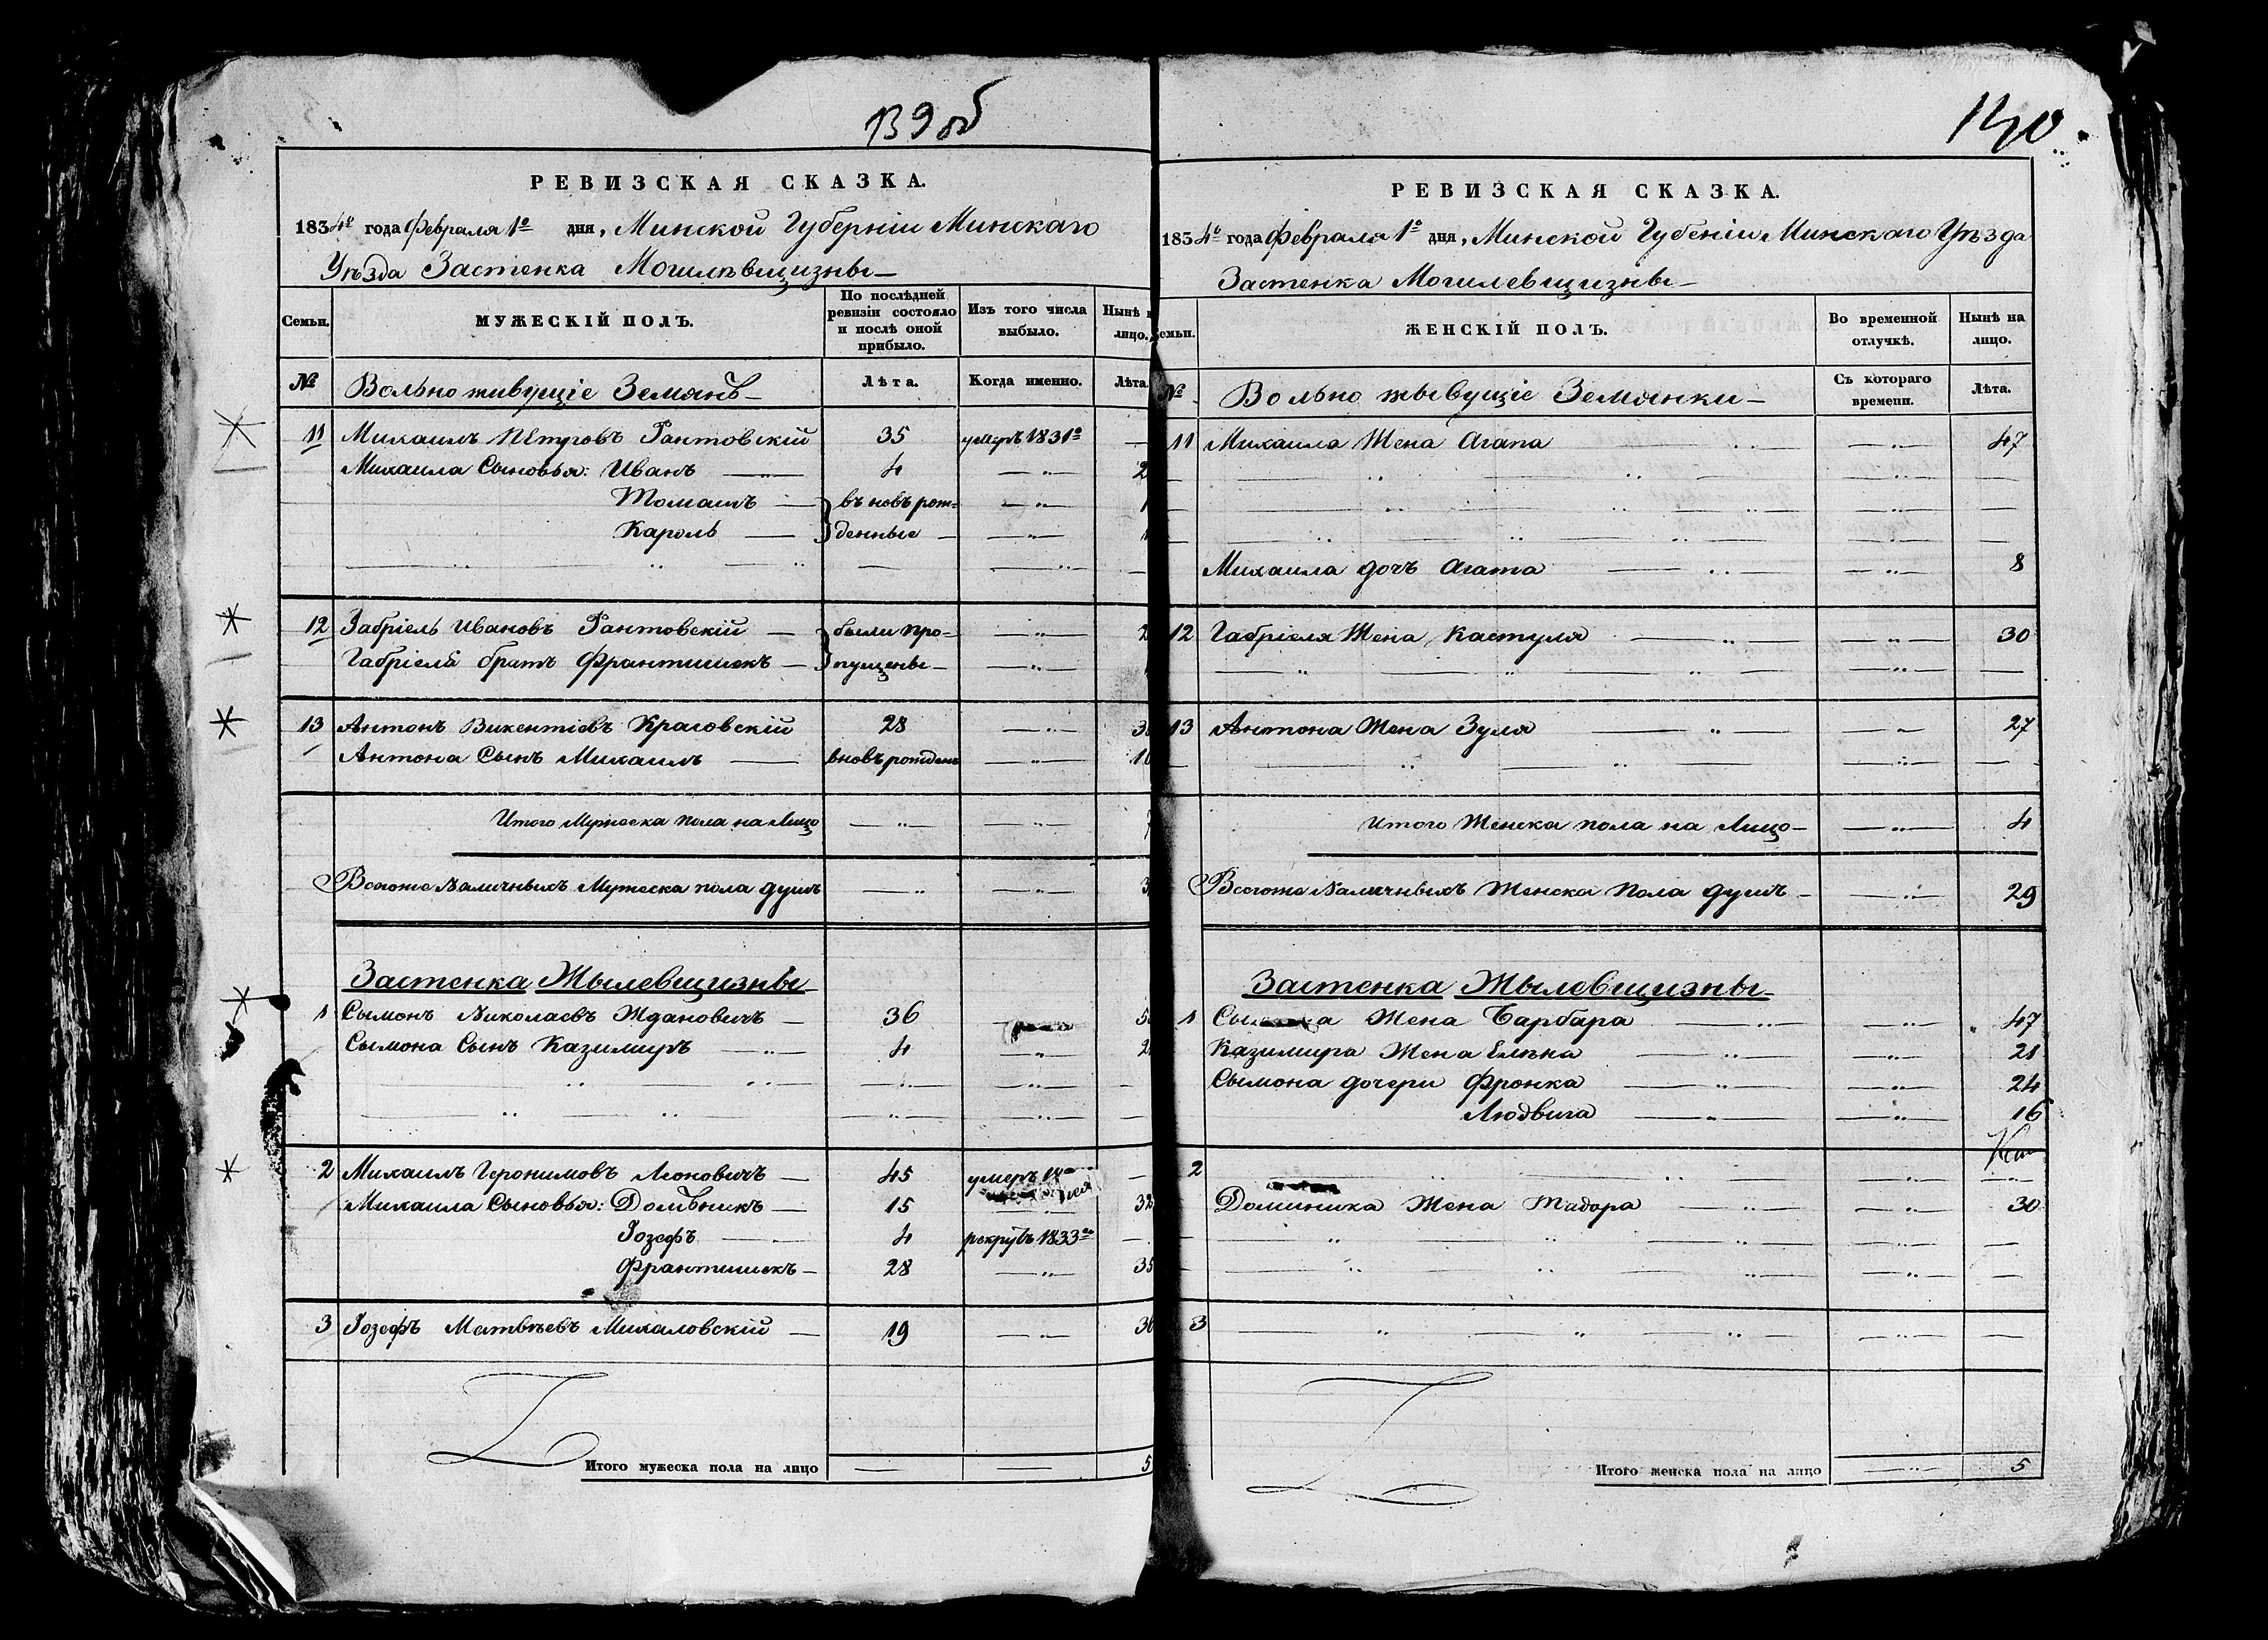 139 об
РЕВИЗСКАЯ СКАЗКА.
1834го года Февраля 1о дня, Минской Губерніи Минскаго
Уѣзда Застенка Могилевщизны
Семьи.
МУЖЕСКІЙ ПОЛЪ.
По послѣдней ревизіи состояло и послѣ оной прибыло.
Изъ того числа выбыло.
Нынѣ
лицо.
№
Вольно живущіе Земянѣ
Лѣта.
Когда именно.
Лѣта.
11 Михаилъ Петровъ Гантовскій 35 умеръ 1831о
Михаила Сыновья: Иванъ 4 2
Томашъ въ новъ рож-
Кароль денные
12 Габріель Ивановъ Гантовскій были про- 2
Габріеля братъ Франтишекъ пущены
13 Антонъ Викентіевъ Красовскій 28 3
Антона Сынъ Михаилъ вновъ рожденъ 10
Итого Мужеска пола на Лицо
Всегоже Наличныхъ Мужеска пола душъ 3
Застенка Жылевщизны
1 Сымонъ Николаевъ Ждановичъ 36 5
Сымона Сынъ Казимиръ 4 2
2 Михаилъ Геронимовъ Леоновичъ 45 умеръ
Михаила Сыновья: Доминикъ 15 32
Іозефъ 4 рекрутъ 1833го
Франтишекъ 28 35
3 Іозефъ Матвѣевъ Михаловскій 19 36
Итого мужеска пола на лицо 5
140
РЕВИЗСКАЯ СКАЗКА.
1834го года Февраля 1о дня, Минской Губеніи Минскаго Уѣзда
Застенка Могилевщизны
семьи.
ЖЕНСКІЙ ПОЛЪ.
Во временной отлучкѣ.
Нынѣ на лицо.
№
Вольно жывущіе Земянки
Съ котораго времени.
Лѣта.
11 Михаила Жена Агапа 47
Михаила дочъ Агата 8
12 Габріеля Жена Кастуля 30
13 Антона Жена Зуля 27
Итого Женска пола на Лицо 4
Всегоже Наличныхъ Женска Пола душъ 29
Застенка Жылевщизны
1 Жена Барбара 47
Казимира Жена Елѣна 28
Сымона дочери Фронка 24
Людвига 16
2
Доминика Жена Тадора 30
3
Итого женска пола на лицо 5